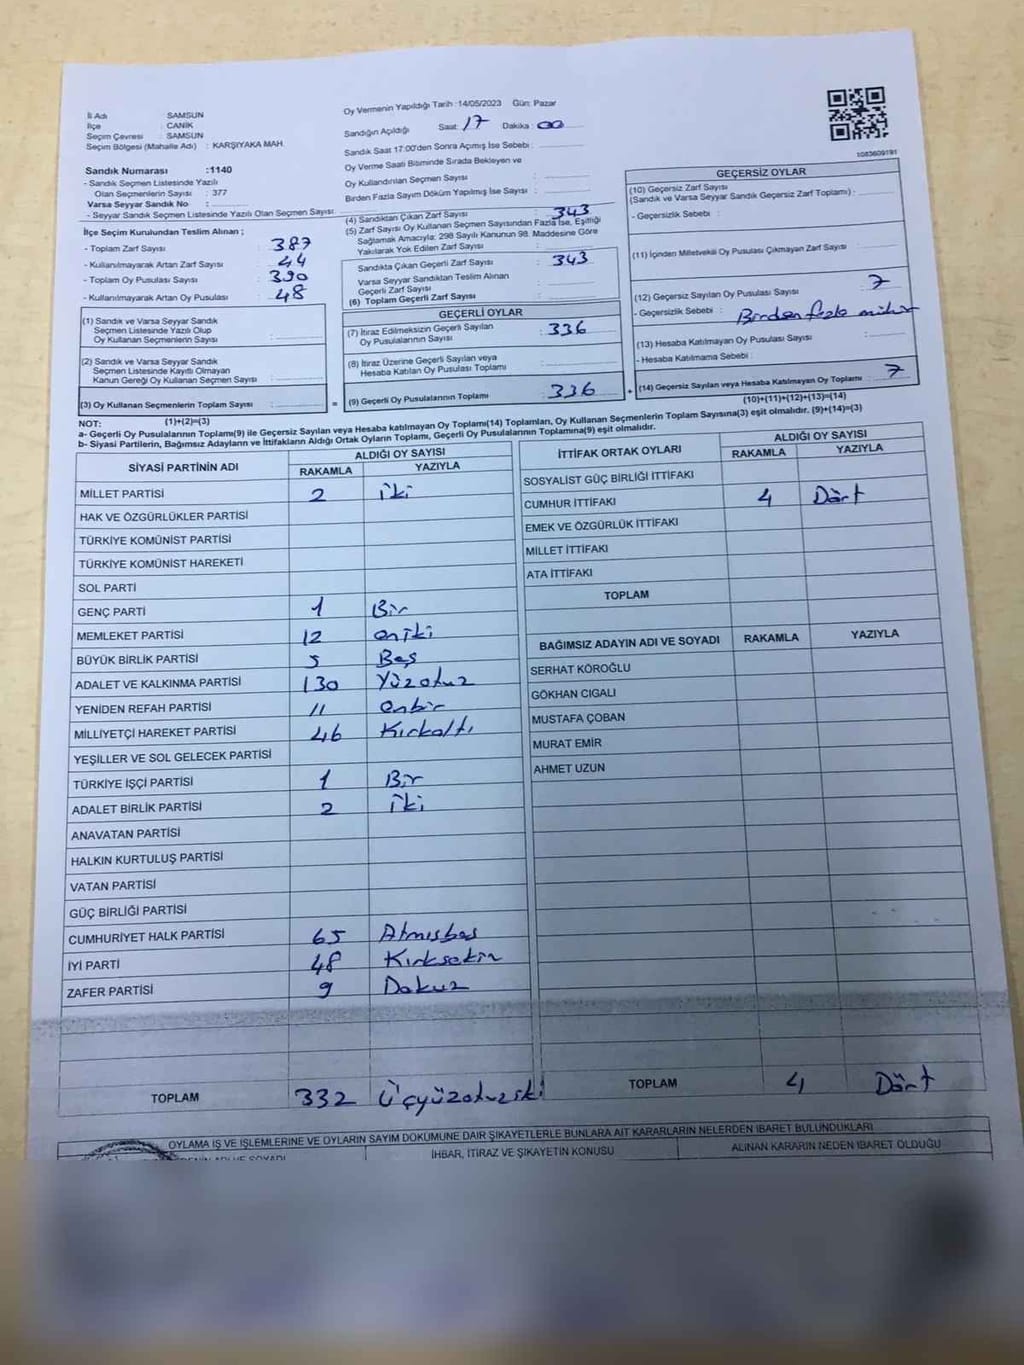 İli Adı SAMSUN
İlçe : CANİK
Seçim Çevresi : SAMSUN
Seçim Bölgesi (Mahalle Adı) : KARŞIYAKA MAH.
Sandık Numarası :1140
- Sandık Seçmen Listesinde Yazılı
Olan Seçmenlerin Sayısı : 377
Varsa Seyyar Sandık No :
- Seyyar Sandık Seçmen Listesinde Yazılı Olan Seçmen Sayısı:
İlçe Seçim Kurulundan Teslim Alınan ;
- Toplam Zarf Sayısı : 387
- Kullanılmayarak Artan Zarf Sayısı : 44
- Toplam Oy Pusulası Sayısı : 390
- Kullanılmayarak Artan Oy Pusulası : 48
(1) Sandık ve Varsa Seyyar Sandık
Seçmen Listesinde Yazılı Olup
Oy Kullanan Seçmenlerin Sayısı :
(2) Sandık ve Varsa Seyyar Sandık
Seçmen Listesinde Kayıtlı Olmayan
Kanun Gereği Oy Kullanan Seçmen Sayısı :
(3) Oy Kullanan Seçmenlerin Toplam Sayısı :
(1)+(2)=(3)
Oy Vermenin Yapıldığı Tarih :14/05/2023 Gün: Pazar
Sandığın Açıldığı Saat: 17 Dakika: 00
Sandık Saat 17:00'den Sonra Açmış İse Sebebi :
Oy Verme Saati Bitiminde Sırada Bekleyen ve
Oy Kullandırılan Seçmen Sayısı :
Birden Fazla Sayım Döküm Yapılmış İse Sayısı :
(4) Sandıktan Çıkan Zarf Sayısı : 343
(5) Zarf Sayısı Oy Kullanan Seçmen Sayısından Fazla İse, Eşitliği
Sağlamak Amacıyla; 298 Sayılı Kanunun 98. Maddesine Göre
Yakılarak Yok Edilen Zarf Sayısı :
Sandıkta Çıkan Geçerli Zarf Sayısı : 343
Varsa Seyyar Sandıktan Teslim Alınan
Geçerli Zarf Sayısı :
(6) Toplam Geçerli Zarf Sayısı :
GEÇERLİ OYLAR
(7) İtiraz Edilmeksizin Geçerli Sayılan
Oy Pusulalarının Sayısı : 336
(8) İtiraz Üzerine Geçerli Sayılan veya
Hesaba Katılan Oy Pusulası Toplamı :
= (9) Geçerli Oy Pusulalarının Toplamı : 336 +
1083609191
GEÇERSİZ OYLAR
(10) Geçersiz Zarf Sayısı
(Sandık ve Varsa Seyyar Sandık Geçersiz Zarf Toplamı) :
- Geçersizlik Sebebi :
(11) İçinden Milletvekili Oy Pusulası Çıkmayan Zarf Sayısı
(12) Geçersiz Sayılan Oy Pusulası Sayısı : 7
- Geçersizlik Sebebi : Birden fazla mühür
(13) Hesaba Katılmayan Oy Pusulası Sayısı :
- Hesaba Katılmama Sebebi :
(14) Geçersiz Sayılan veya Hesaba Katılmayan Oy Toplamı : 7
(10)+(11)+(12)+(13)=(14)
NOT:
a- Geçerli Oy Pusulalarının Toplamı(9) ile Geçersiz Sayılan veya Hesaba Katılmayan Oy Toplamı(14) Toplamları, Oy Kullanan Seçmenlerin Toplam Sayısına(3) eşit olmalıdır. (9)+(14)=(3)
b- Siyasi Partilerin, Bağımsız Adayların ve İttifakların Aldığı Ortak Oyların Toplamı, Geçerli Oy Pusulalarının Toplamına(9) eşit olmalıdır.
SİYASİ PARTİNİN ADI ALDIĞI OY SAYISI
RAKAMLA YAZIYLA
MİLLET PARTİSİ 2 iki
HAK VE ÖZGÜRLÜKLER PARTİSİ
TÜRKİYE KOMÜNİST PARTİSİ
TÜRKİYE KOMÜNİST HAREKETİ
SOL PARTİ
GENÇ PARTİ 1 Bir
MEMLEKET PARTİSİ 12 oniki
BÜYÜK BİRLİK PARTİSİ 5 Beş
ADALET VE KALKINMA PARTİSİ 130 Yüzotuz
YENİDEN REFAH PARTİSİ 11 onbir
MİLLİYETÇİ HAREKET PARTİSİ 46 Kırkaltı
YEŞİLLER VE SOL GELECEK PARTİSİ
TÜRKİYE İŞÇİ PARTİSİ 1 Bir
ADALET BİRLİK PARTİSİ 2 iki
ANAVATAN PARTİSİ
HALKIN KURTULUŞ PARTİSİ
VATAN PARTİSİ
GÜÇ BİRLİĞİ PARTİSİ
CUMHURİYET HALK PARTİSİ 65 Atmışbeş
İYİ PARTİ 48 Kırksekiz
ZAFER PARTİSİ 9 Dokuz
TOPLAM 332 Üçyüzotuziki
İTTİFAK ORTAK OYLARI ALDIĞI OY SAYISI
RAKAMLA YAZIYLA
SOSYALİST GÜÇ BİRLİĞİ İTTİFAKI
CUMHUR İTTİFAKI 4 Dört
EMEK VE ÖZGÜRLÜK İTTİFAKI
MİLLET İTTİFAKI
ATA İTTİFAKI
TOPLAM
BAĞIMSIZ ADAYIN ADI VE SOYADI RAKAMLA YAZIYLA
SERHAT KÖROĞLU
GÖKHAN CIGALI
MUSTAFA ÇOBAN
MURAT EMİR
AHMET UZUN
TOPLAM 4 Dört
OYLAMA İŞ VE İŞLEMLERİNE VE OYLARIN SAYIM DÖKÜMÜNE DAİR ŞİKAYETLERLE BUNLARA AİT KARARLARIN NELERDEN İBARET BULUNDUKLARI
İHBAR, İTİRAZ VE ŞİKAYETİN KONUSU ALINAN KARARIN NEDEN İBARET OLDUĞU